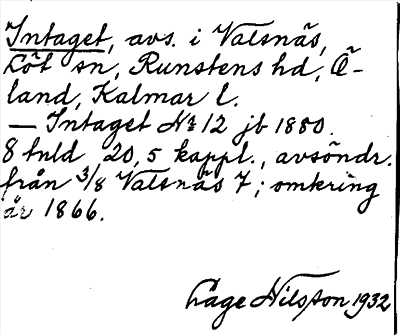 Intaget, avs. i Valsnäs,
Löt sn, Runstens hd, Ö-
land, Kalmar l.
— Intaget № 12 jb 1880.
8 tnld 20,5 kappl., avsöndr.
från 3/8 Valsnäs 7; omkring
år 1866.
Låge Nilsson 1932